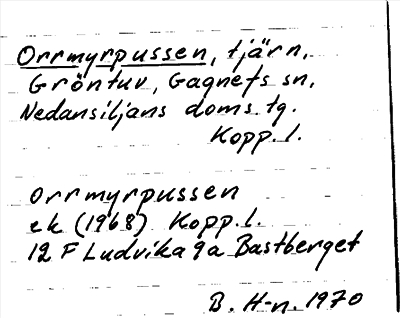 Orrmyrpussen, tjärn,
Gröntuv, Gagnefs sn,
Nedansiljans doms.tg.
Kopp.l.
Orrmyrpussen
ek (1968) Kopp.l.
12 F Ludvika 9a Bastberget
B. H-n. 1970